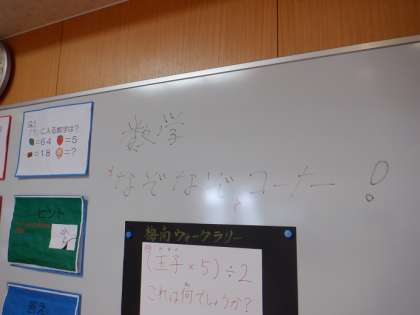 数学
なぞなぞコーナー!
Q.1
「?」に入る数字は?
=6.4
=5
=1.8
=?
ヒント
答え
梅南ウォークラリー
(王子×5)÷2
これは何でしょうか?